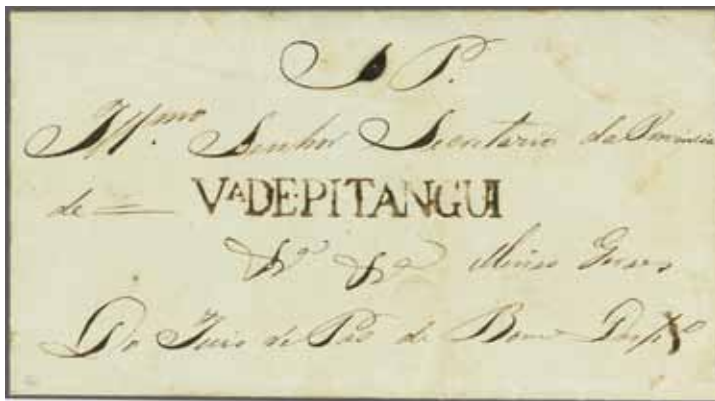 S P.
Illmo Senhor Secretario da Provincia
de = VA DE PITANGUI
Minas Geraes
Do Juiz de Paz do Bom